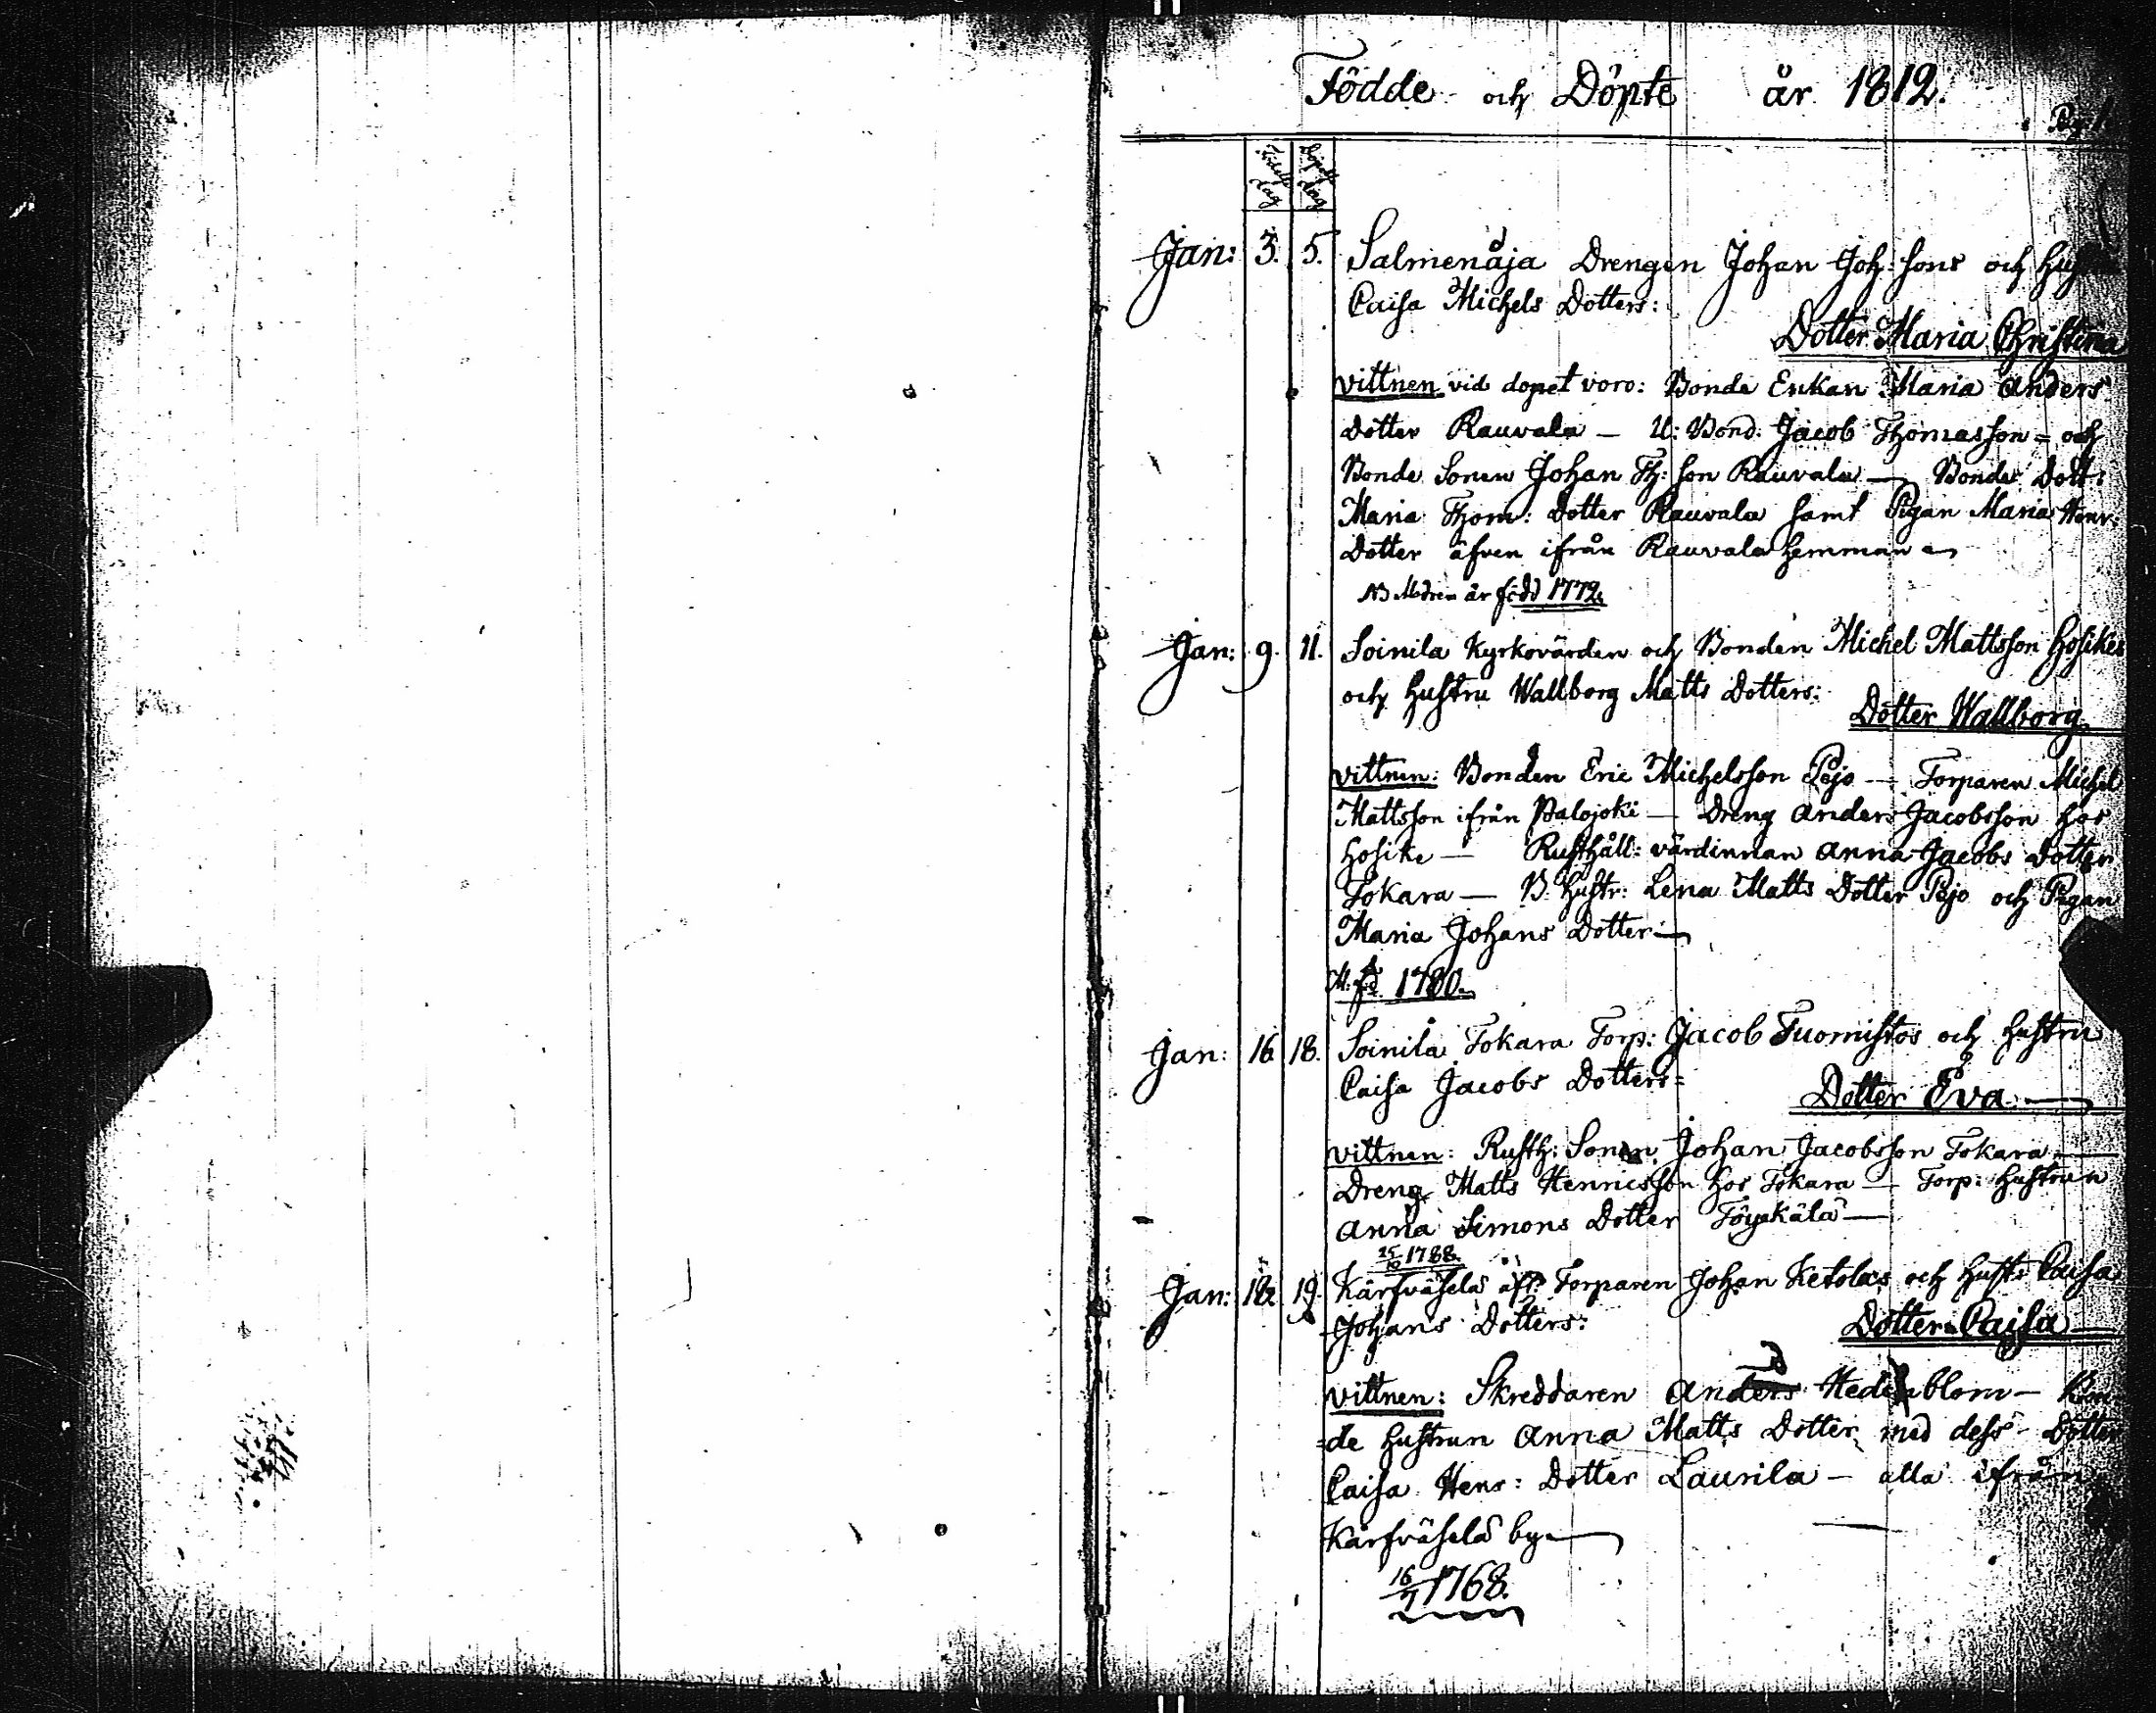 Födde och Döpte år 1812.
Pag. 1.
Födelse dag
Döpelse dag
Jan: 3. 5. Salmenåja Drengen Johan Joh: sons och Hust
Caisa Michels Dotters:
Dotter Maria Christina
vittnen vid dopet voro: Bonde Enkan Maria Anders
Dotter Rauvala — U: Bond: Jacob Thomasson = och
Bonde Sonen Johan Th: son Rauvala — Bonde Dott:
Maria Thom: Dotter Rauvala samt Pigan Maria Henr:
Dotter äfven ifrån Rauvala hemman —
NB Modren är född 1772.
Jan: 9. 11. Soinila Kyrkovärden och Bonden Michel Mattsson Hosikes
och Hustru Wallborg Matts Dotters:
Dotter Wallborg
vittnen: Bonden Eric Michelsson Pejo — Torparen Michel
Mattsson ifrån Palojoki — Dreng Anders Jacobsson hos
Hosike — Rusthåll: värdinnan Anna Jacobs Dotter
Tokara — B. Hustr: Lena Matts Dotter Pejo och Pigan
Maria Johans Dotter —
M: fd. 1780.
Jan: 16 18. Soinila Tokara Torp: Jacob Tuomistos och Hustru
Caisa Jacobs Dotters =
Dotter Eva —
vittnen: Rusth: Sonen Johan Jacobsson Tokara —
Dreng Matts Henricsson hos Tokara — Torp: Hustrun
Anna Simons Dotter Töyskälä —
25/10 1788.
Jan: 18 19. Kärfväselä Torparen Johan Ketolas och Hustr Caisa
Johans Dotters:
Dotter Caisa —
vittnen: Skreddaren Anders Hedenblom — Bon
=de hustrun Anna Matts Dotter med dess Dotter
Caisa Henr: Dotter Laurila — alla ifrån
Kärfväselä by —
16/7 1768.